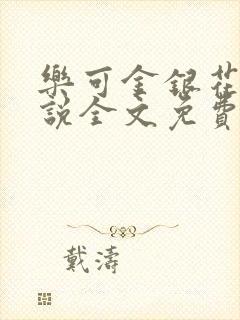 樂可金銀花
說全文免費
戴濤